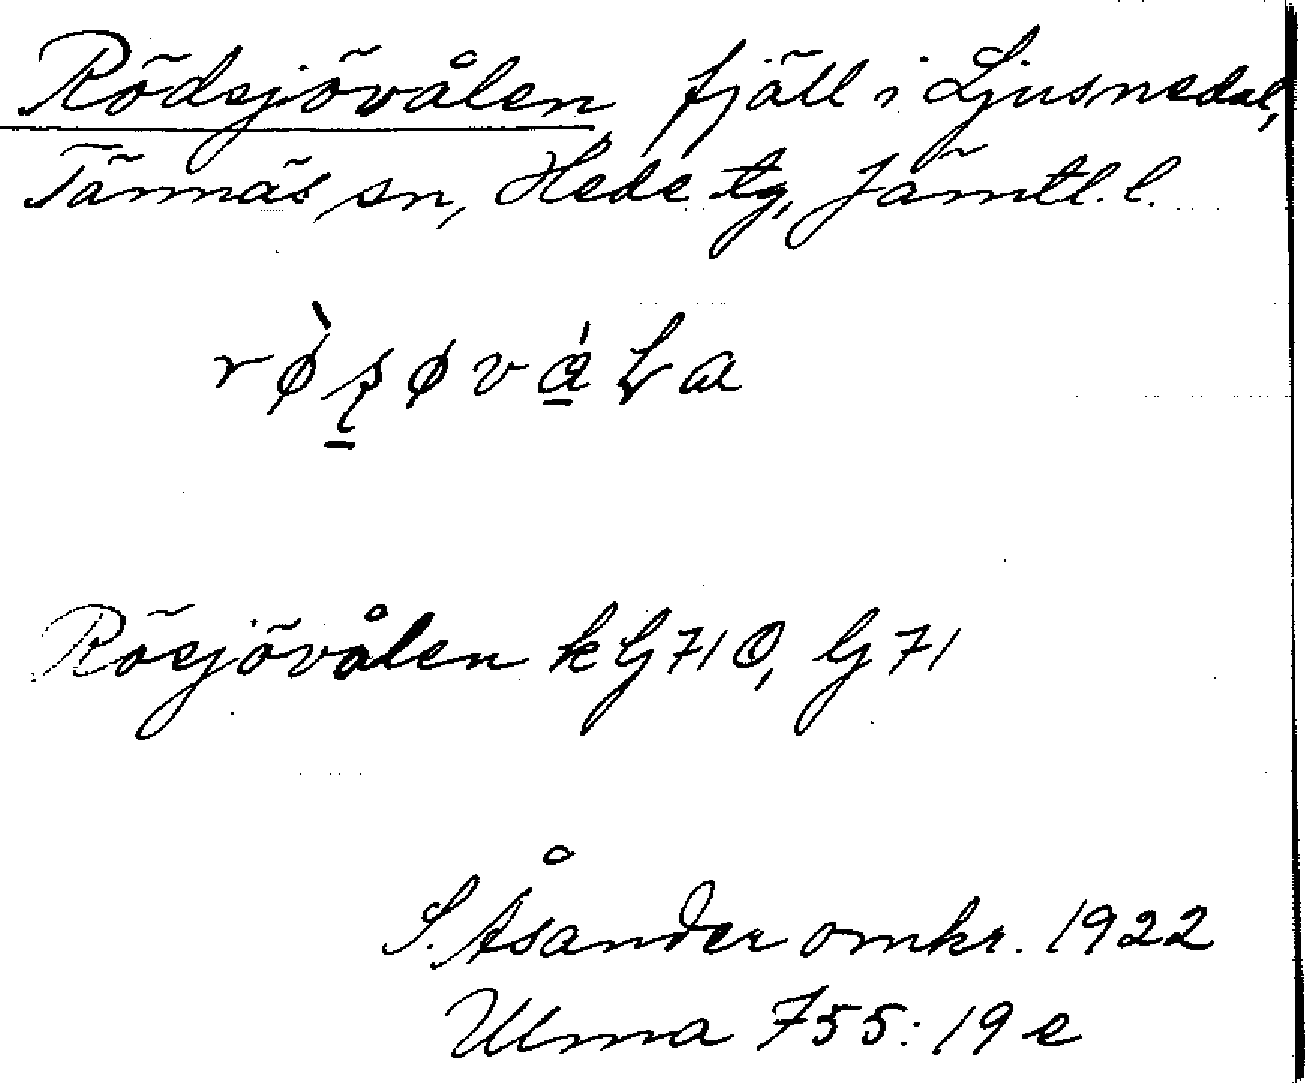 Rödsjövålen, fjäll i Ljusnedal,
Tännäs sn, Hede tg, Jämtl. l.
Rösjövålen k G 71 Ö, G 71
S. Åsander omkr. 1922
Ulma 755: 19 e